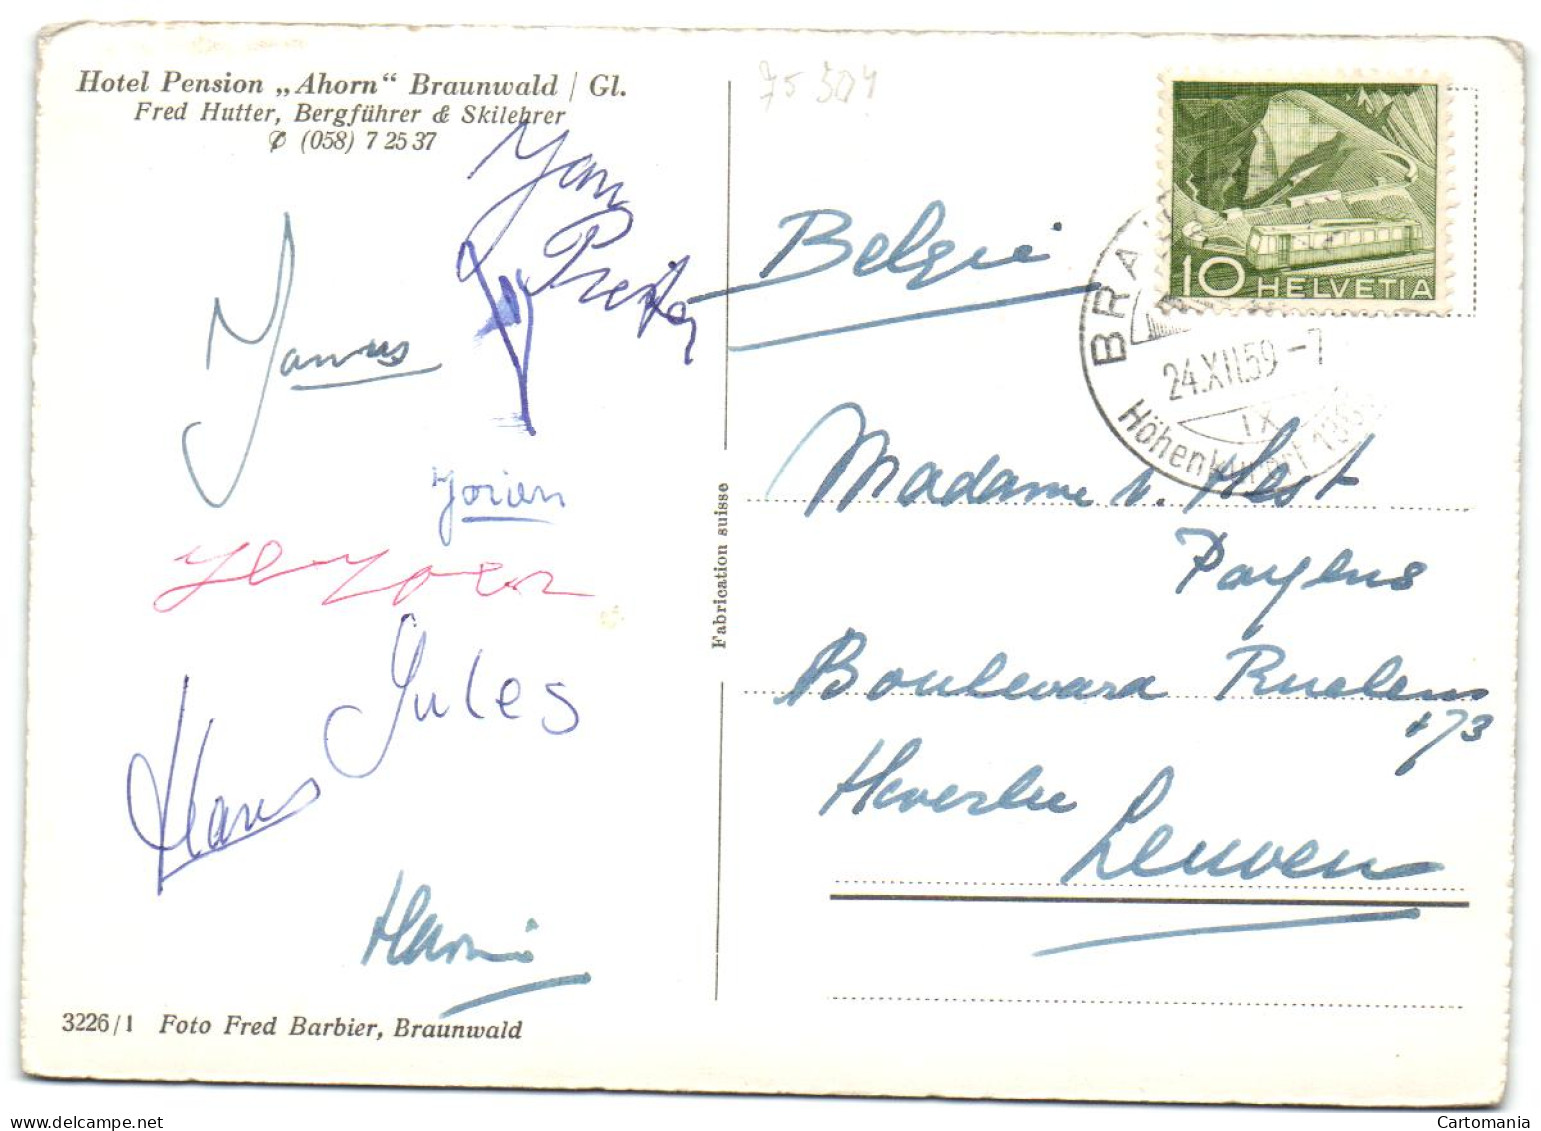 Hotel Pension „Ahorn“ Braunwald / Gl.
Fred Hutter, Bergführer & Skilehrer
(058) 7 25 37
Jan
Jorien
Jules
Hans
3226/1 Foto Fred Barbier, Braunwald
Fabrication suisse
75 504
10 HELVETIA
24.XII.59-7
IX
Höhenkurort
België
Madame v. Hest
Payens
Boulevard Ruelens
173
Heverlee
Leuven
Cartomania